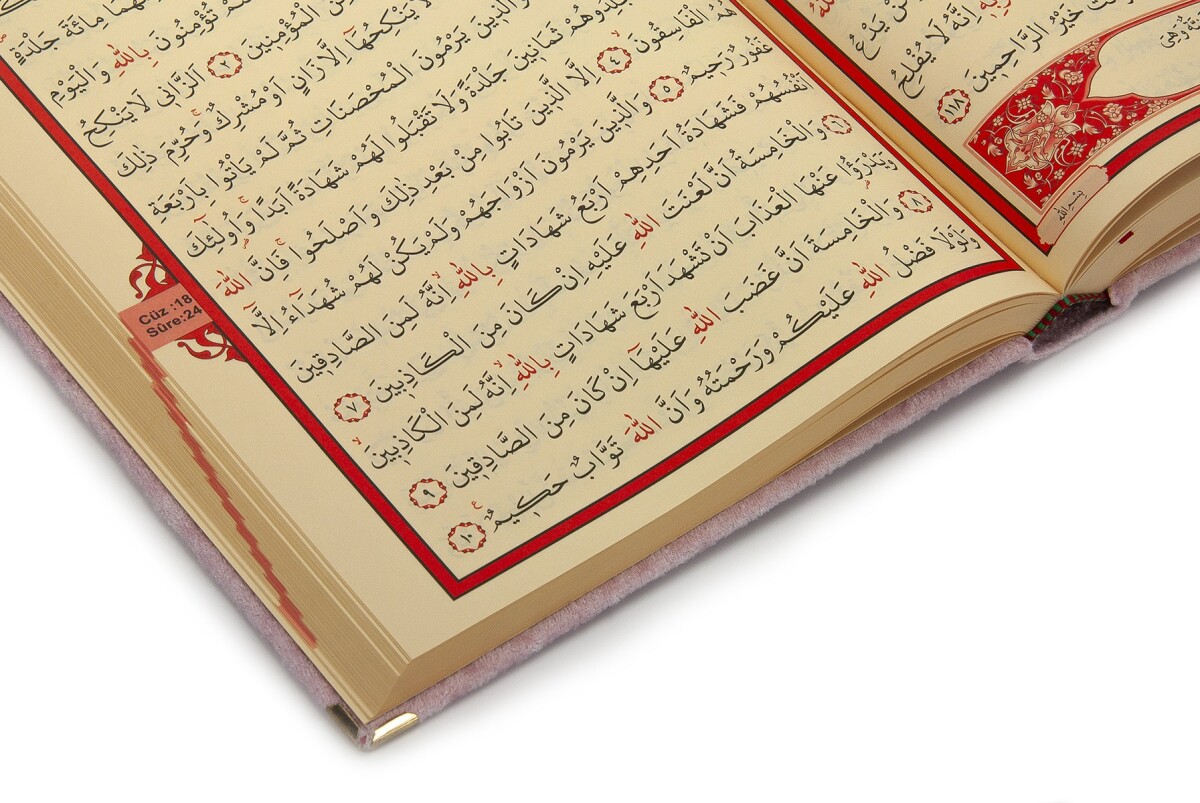 خَيْرُ الرَّاحِمِينَ ١١٨
اِنَّهُ لَا يُفْلِحُ
يَدْعُ
بِسْمِ اللّٰهِ
مِائَةَ جَلْدَةٍ
تُؤْمِنُونَ بِاللّٰهِ وَالْيَوْمِ
الْمُؤْمِنِينَ ٢ اَلزَّانِي لَا يَنْكِحُ
لَا يَنْكِحُهَٓا اِلَّا زَانٍ اَوْ مُشْرِكٌ وَحُرِّمَ ذٰلِكَ
وَالَّذِينَ يَرْمُونَ الْمُحْصَنَاتِ ثُمَّ لَمْ يَأْتُوا بِاَرْبَعَةِ
ثَمَانِينَ جَلْدَةً وَلَا تَقْبَلُوا لَهُمْ شَهَادَةً اَبَدًا وَاُولٰٓئِكَ
هُمُ الْفَاسِقُونَ ٤ اِلَّا الَّذِينَ تَابُوا مِنْ بَعْدِ ذٰلِكَ وَاَصْلَحُوا فَاِنَّ اللّٰهَ
غَفُورٌ رَحِيمٌ ٥ وَالَّذِينَ يَرْمُونَ اَزْوَاجَهُمْ وَلَمْ يَكُنْ لَهُمْ شُهَدَٓاءُ اِلَّٓا
اَنْفُسُهُمْ فَشَهَادَةُ اَحَدِهِمْ اَرْبَعُ شَهَادَاتٍ بِاللّٰهِ اِنَّهُ لَمِنَ الصَّادِقِينَ
٦ وَالْخَامِسَةُ اَنَّ لَعْنَتَ اللّٰهِ عَلَيْهِ اِنْ كَانَ مِنَ الْكَاذِبِينَ ٧
وَيَدْرَؤُا عَنْهَا الْعَذَابَ اَنْ تَشْهَدَ اَرْبَعَ شَهَادَاتٍ بِاللّٰهِ اِنَّهُ لَمِنَ الْكَاذِبِينَ
٨ وَالْخَامِسَةَ اَنَّ غَضَبَ اللّٰهِ عَلَيْهَٓا اِنْ كَانَ مِنَ الصَّادِقِينَ ٩
وَلَوْلَا فَضْلُ اللّٰهِ عَلَيْكُمْ وَرَحْمَتُهُ وَاَنَّ اللّٰهَ تَوَّابٌ حَكِيمٌ ١٠
Cüz :18
Sûre:24